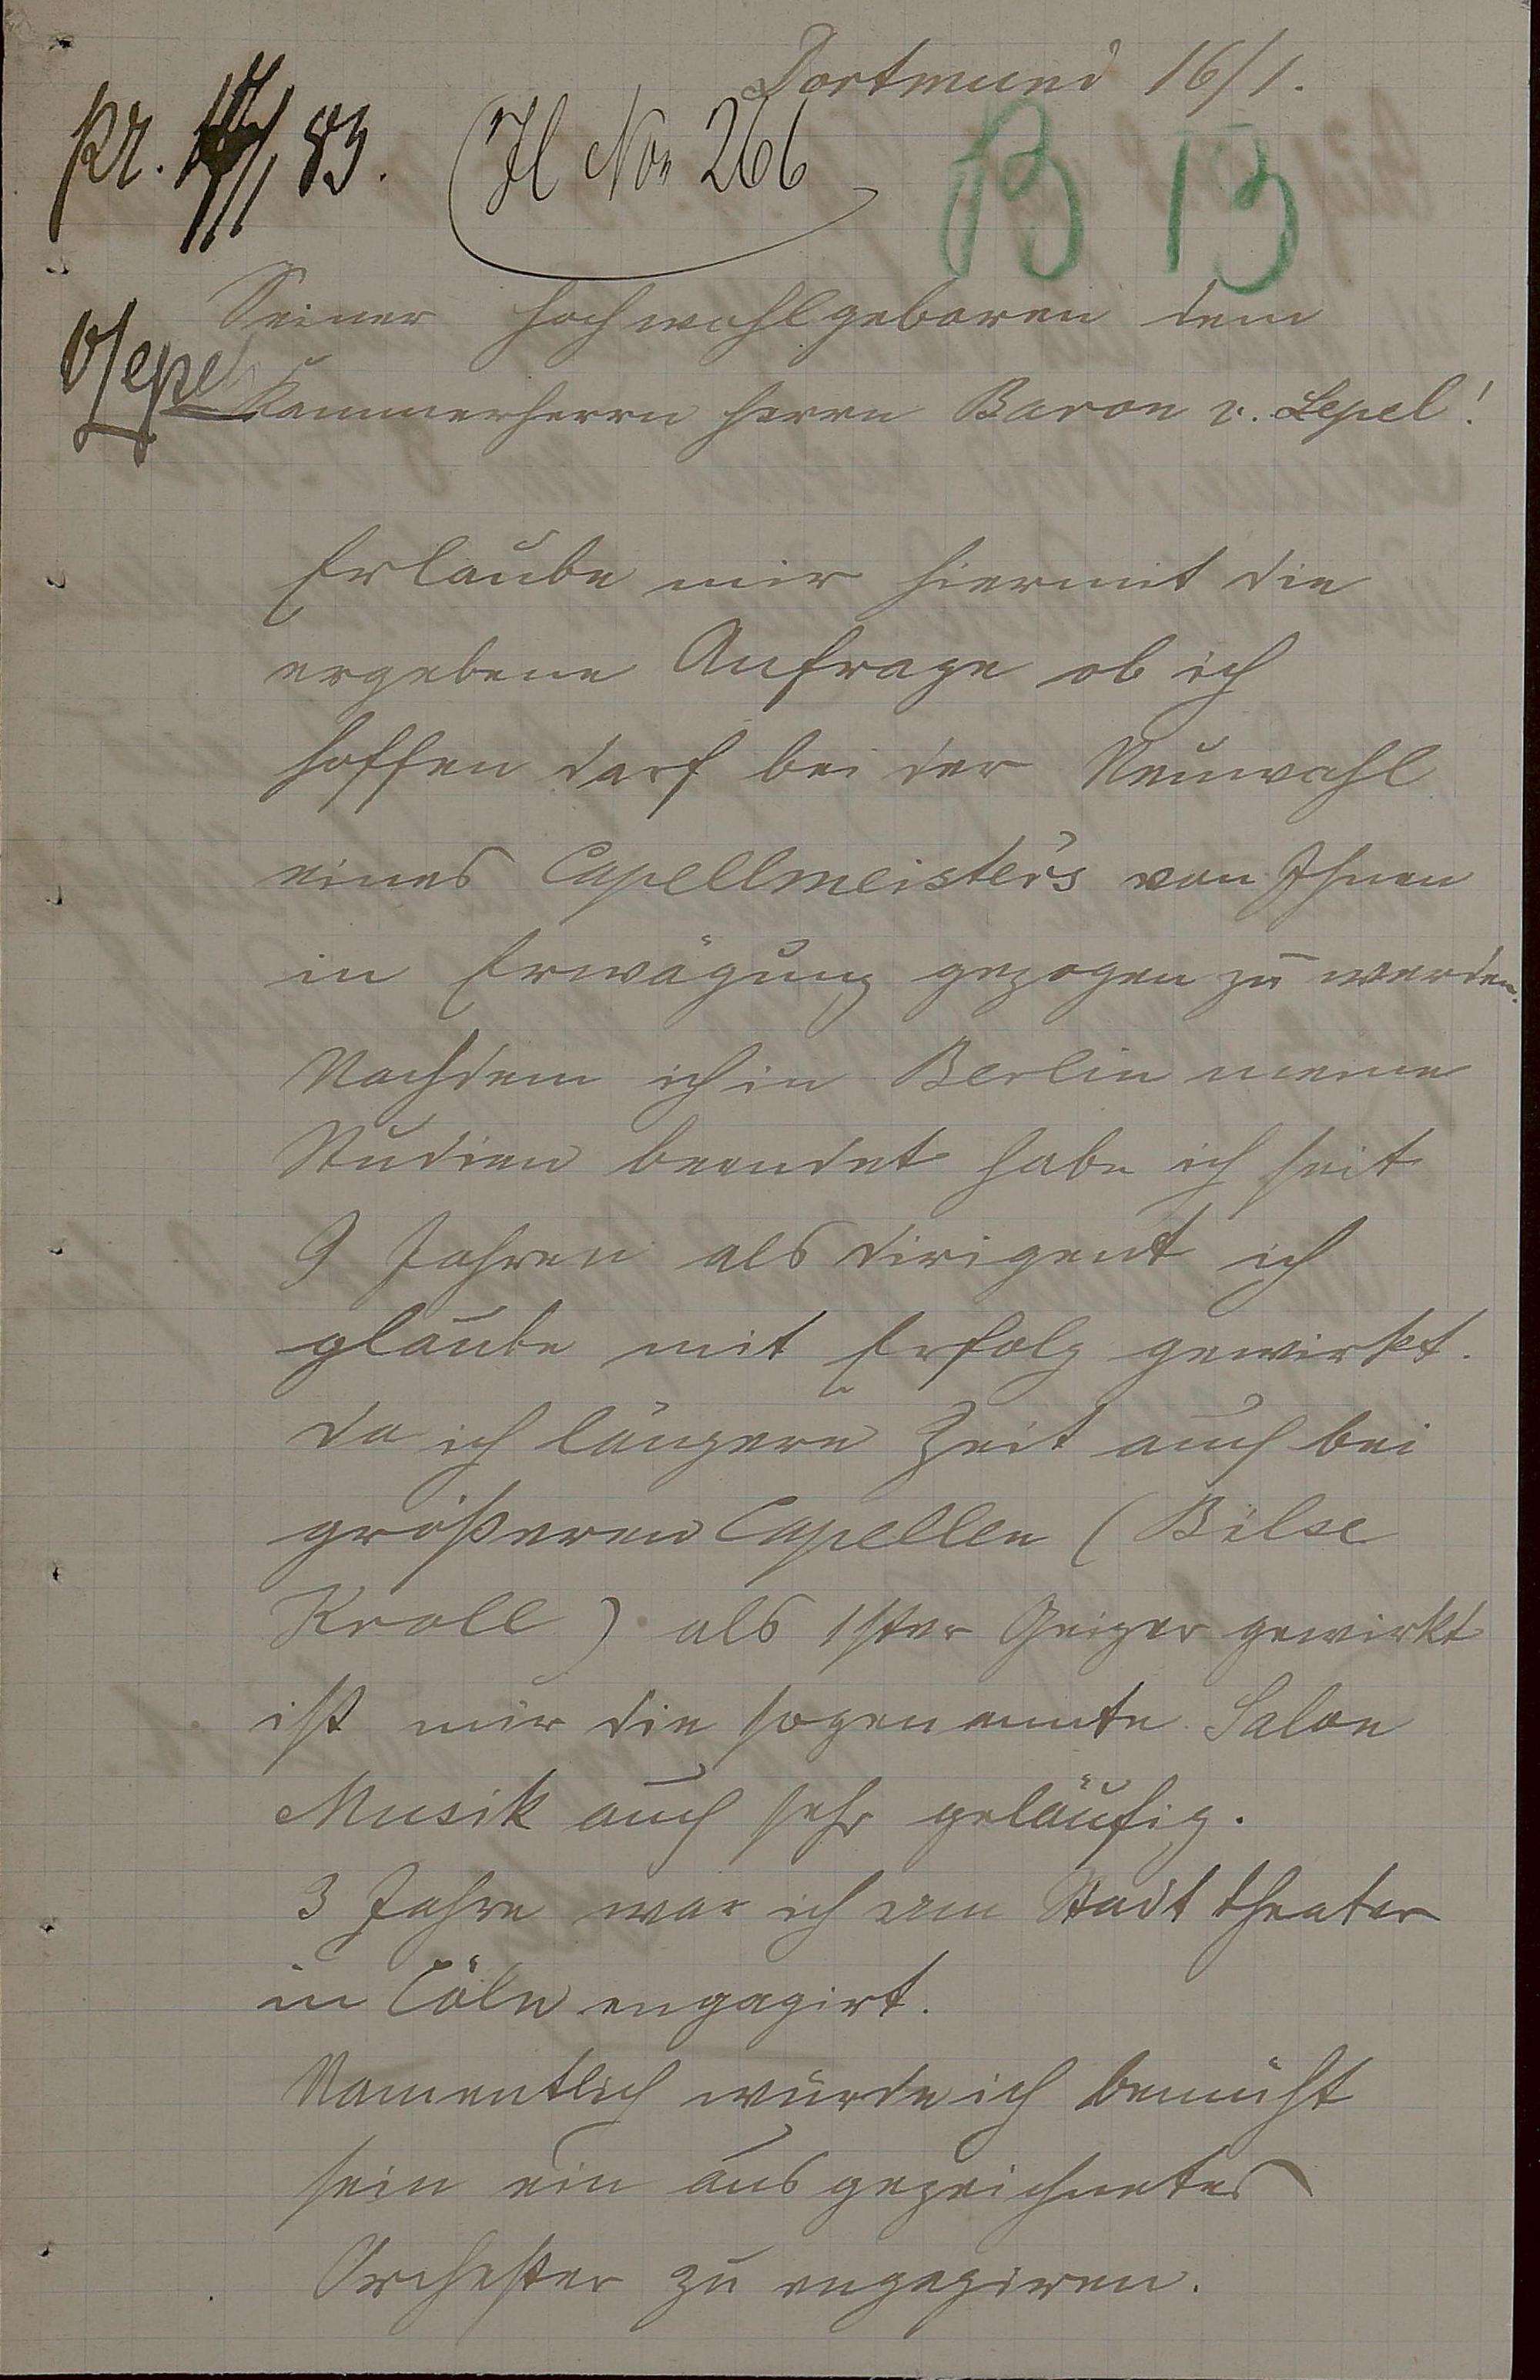 Dortmund 16/1.
pr. /1 83. Jl No 266
B 13
Seiner Hochwohlgeboren dem
vLepel
Kammerherrn Herrn Baron v. Lepel!
Erlaube mir hiermit die
ergebene Anfrage ob ich
hoffen darf bei der Neuwahl
eines Capellmeisters von Ihnen
in Erwägung gezogen zu werden.
Nachdem ich in Berlin meine
Studien beendet habe ich seit
9 Jahren als Dirigent ich
glaube mit Erfolg gewirkt.
Da ich längere Zeit auch bei
größeren Capellen (Bilse
Kroll) als 1ster Geiger gewirkt
ist mir die sogenannte Salon
Musik auch sehr geläufig.
3 Jahre war ich am Stadttheater
in Cöln engagirt.
Namentlich würde ich bemüht
sein ein ausgezeichnetes
Orchester zu engagiren.